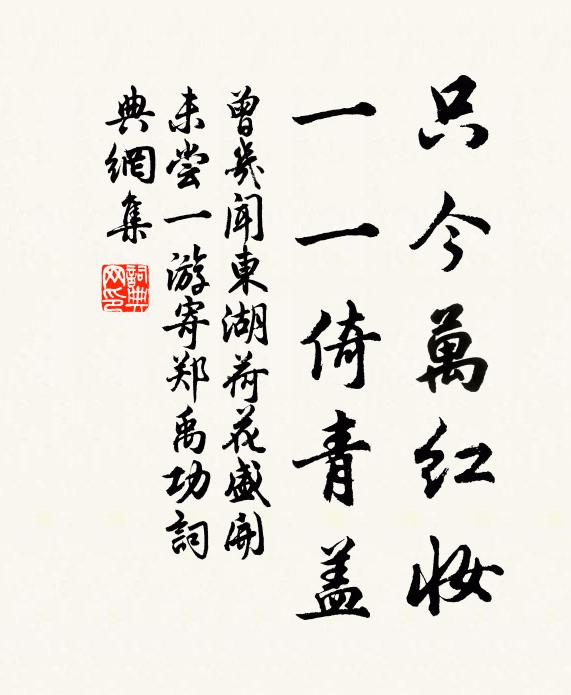 只今萬红妆
一一倚青蓋
曾幾闻東湖荷花盛開
未尝一游寄郑禹功詞
典網集
詞典网印